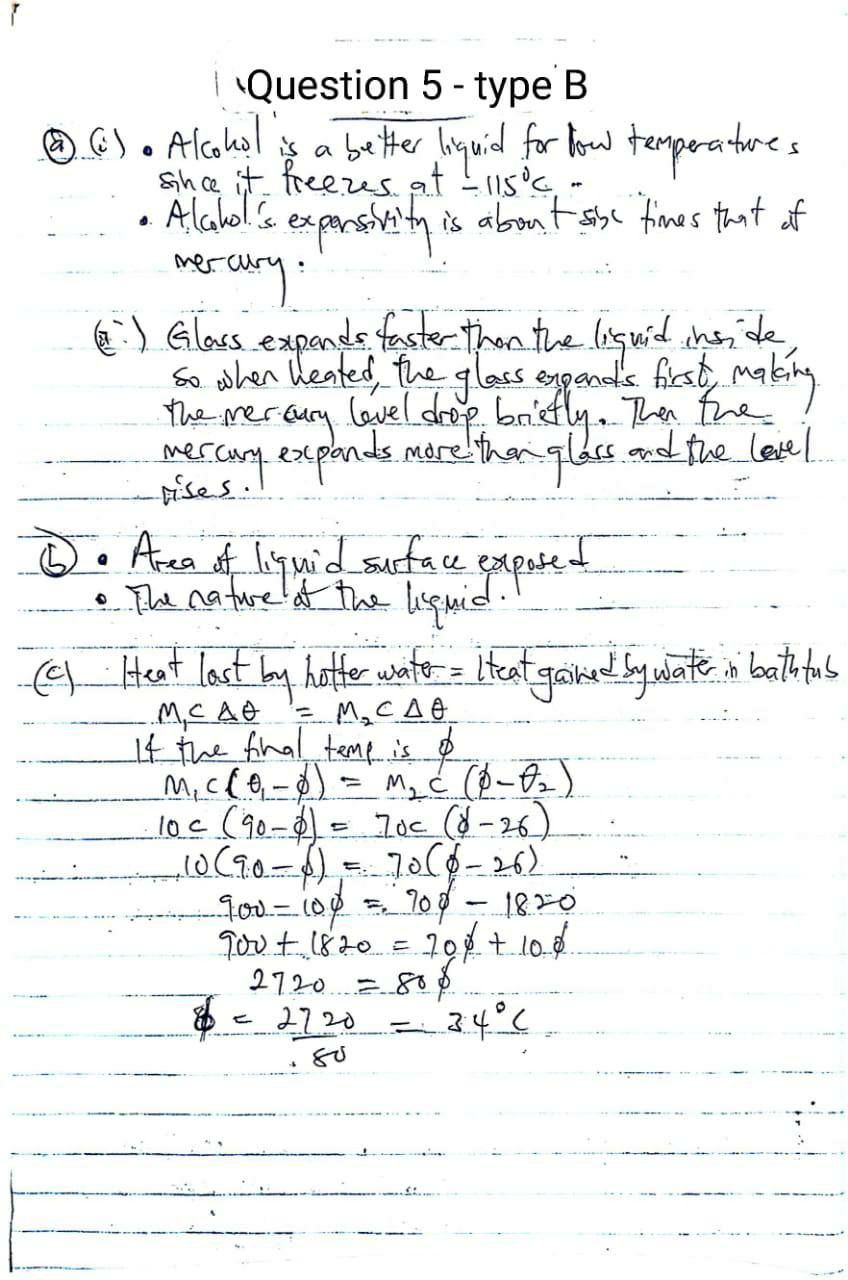 Question 5 - type B
(a) (i) • Alcohol is a better liquid for low temperatures
since it freezes at -115°C.
• Alcohol's expansivity is about six times that of
mercury.
(ii) Glass expands faster than the liquid inside,
so when heated, the glass expands first, making
the mercury level drop briefly. Then the
mercury expands more than glass and the level
rises.
(b) • Area of liquid surface exposed
• The nature of the liquid.
(c) Heat lost by hotter water = Heat gained by water in bathtub
M₁C Δθ = M₂C Δθ
If the final temp is ϕ
M₁C(θ₁-ϕ) = M₂C (ϕ-θ₂)
10c (90-ϕ) = 70c (ϕ-26)
10(90-ϕ) = 70(ϕ-26)
900-10ϕ = 70ϕ - 1820
900 + 1820 = 70ϕ + 10ϕ
2720 = 80ϕ
ϕ = 2720 = 34°C
80